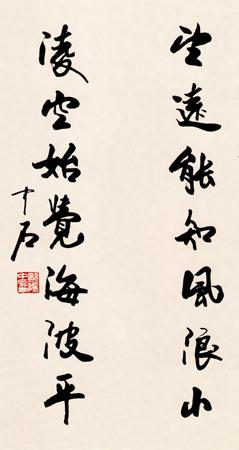 望遠能知風浪小
凌空始覺海波平
中石